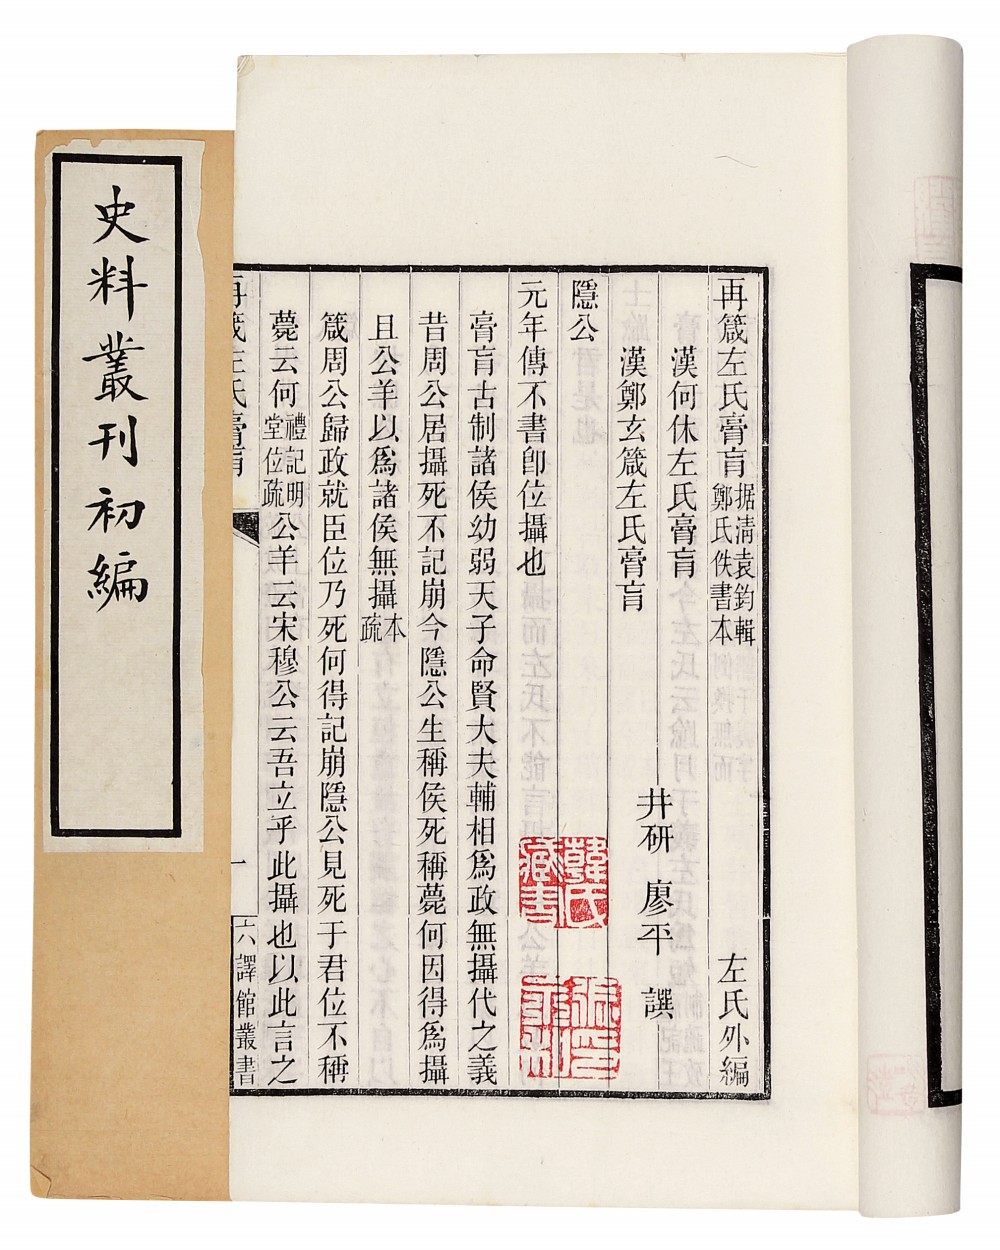 史料叢刊初編
再箴左氏膏肓 据淸袁鈞輯鄭氏佚書本 左氏外編
漢何休左氏膏肓
漢鄭玄箴左氏膏肓 井研 廖平 譔
隱公
元年傳不書卽位攝也
膏肓古制諸侯幼弱天子命賢大夫輔相爲政無攝代之義
昔周公居攝死不記崩今隱公生稱侯死稱薨何因得爲攝
且公羊以爲諸侯無攝 本疏
箴周公歸政就臣位乃死何得記崩隱公見死于君位不稱
薨云何 禮記明堂位疏 公羊云宋穆公云吾立乎此攝也以此言之
再箴左氏膏肓 一 六譯館叢書
韓氏藏書